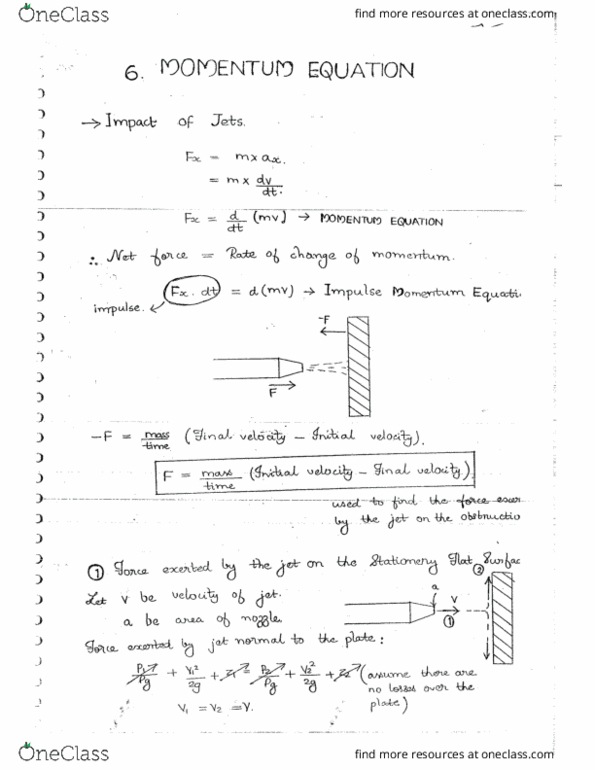 OneClass
find more resources at oneclass.com
6. MOMENTUM EQUATION
→ Impact of Jets.
Fx = m x ax.
= m x dv/dt.
Fx = d/dt (mv) → MOMENTUM EQUATION
∴ Net force = Rate of change of momentum.
Fx. dt = d(mv) → Impulse Momentum Equati
impulse.
-F
F
-F = mass/time (Final velocity - Initial velocity).
F = mass/time (Initial velocity - Final velocity)
used to find the force exer
by the jet on the obstructio
① Force exerted by the jet on the Stationery Flat Surfac
②
Let V be velocity of jet.
a
V
a be area of nozzle.
①
Force exerted by jet normal to the plate:
P1/ρg + V1²/2g + Z1 = P2/ρg + V2²/2g + Z2 (assume there are
no losses over the
plate)
V1 = V2 = V.
OneClass
find more resources at oneclass.com